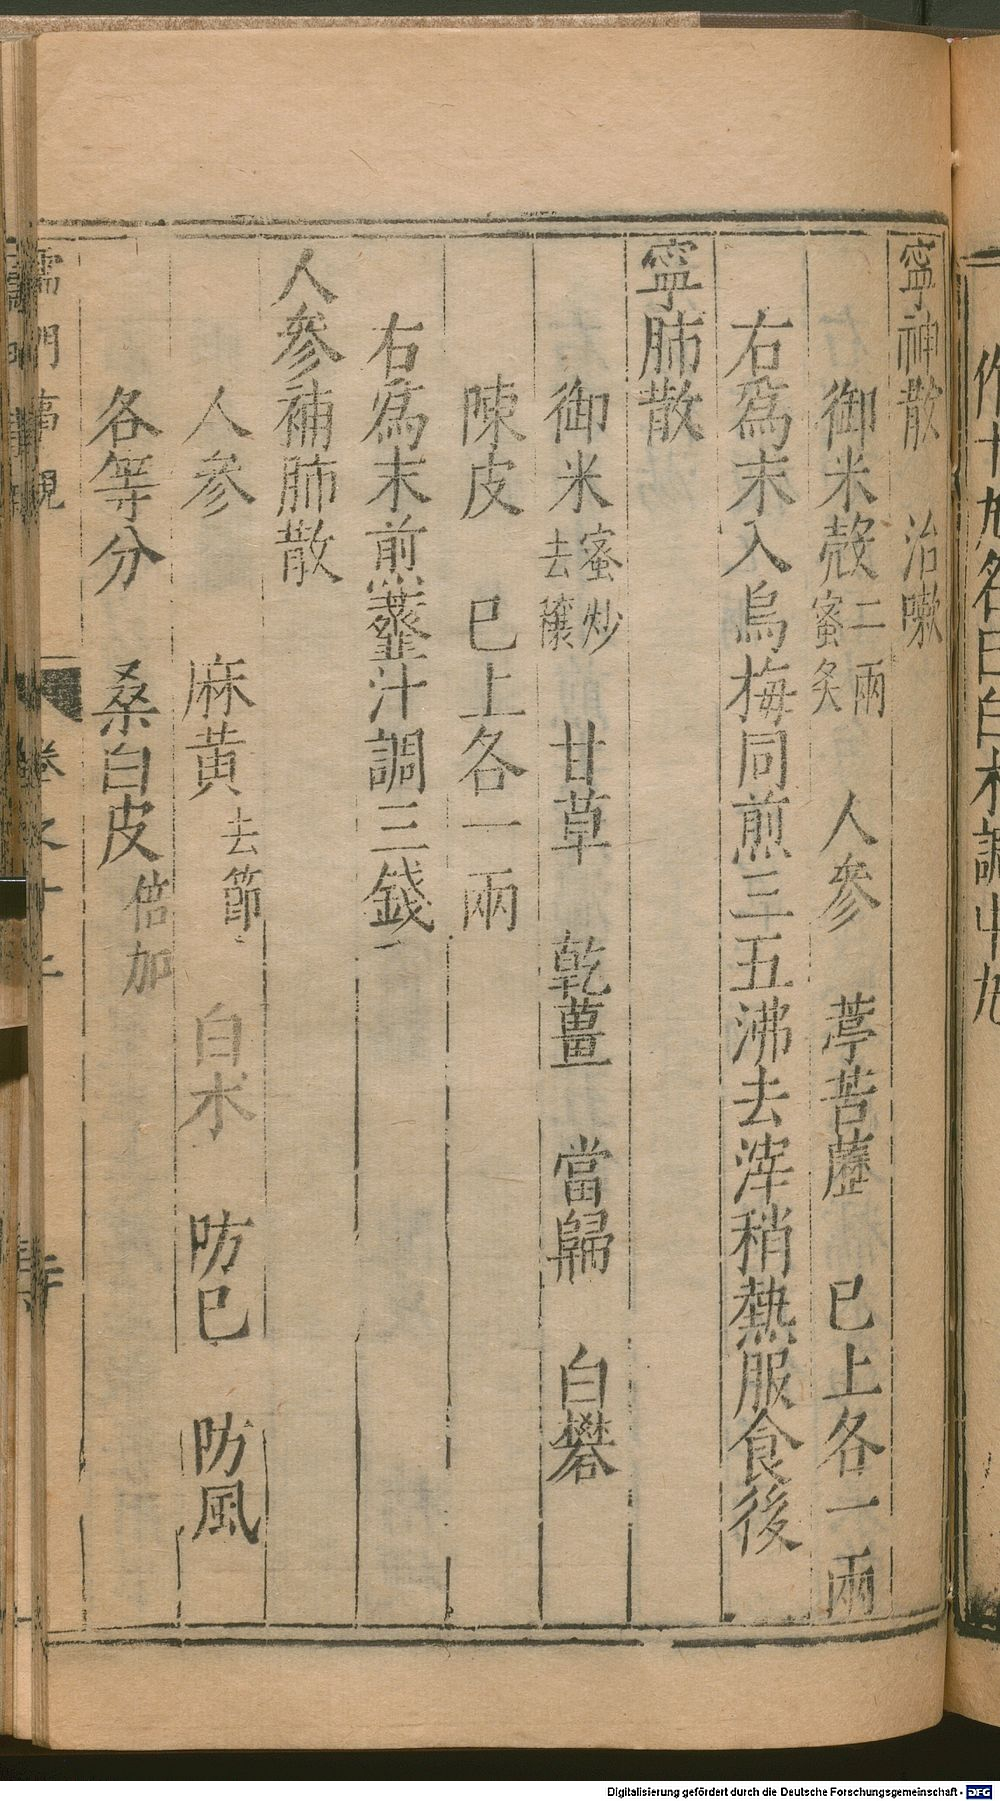 寧神散　治嗽
御米殼二兩蜜炙　人參　葶苦藶　已上各一兩
右爲末入烏梅同煎三五沸去滓稍熱服食後
寧肺散
御米蜜炒去穰　甘草　乾薑　當歸　白礬
陳皮　已上各一兩
右爲末煎虀汁調三錢
人參補肺散
人參　麻黃去節　白朮　防已　防風
各等分　桑白皮倍加
儒門事親　卷之十五
Digitalisierung gefördert durch die Deutsche Forschungsgemeinschaft - DFG